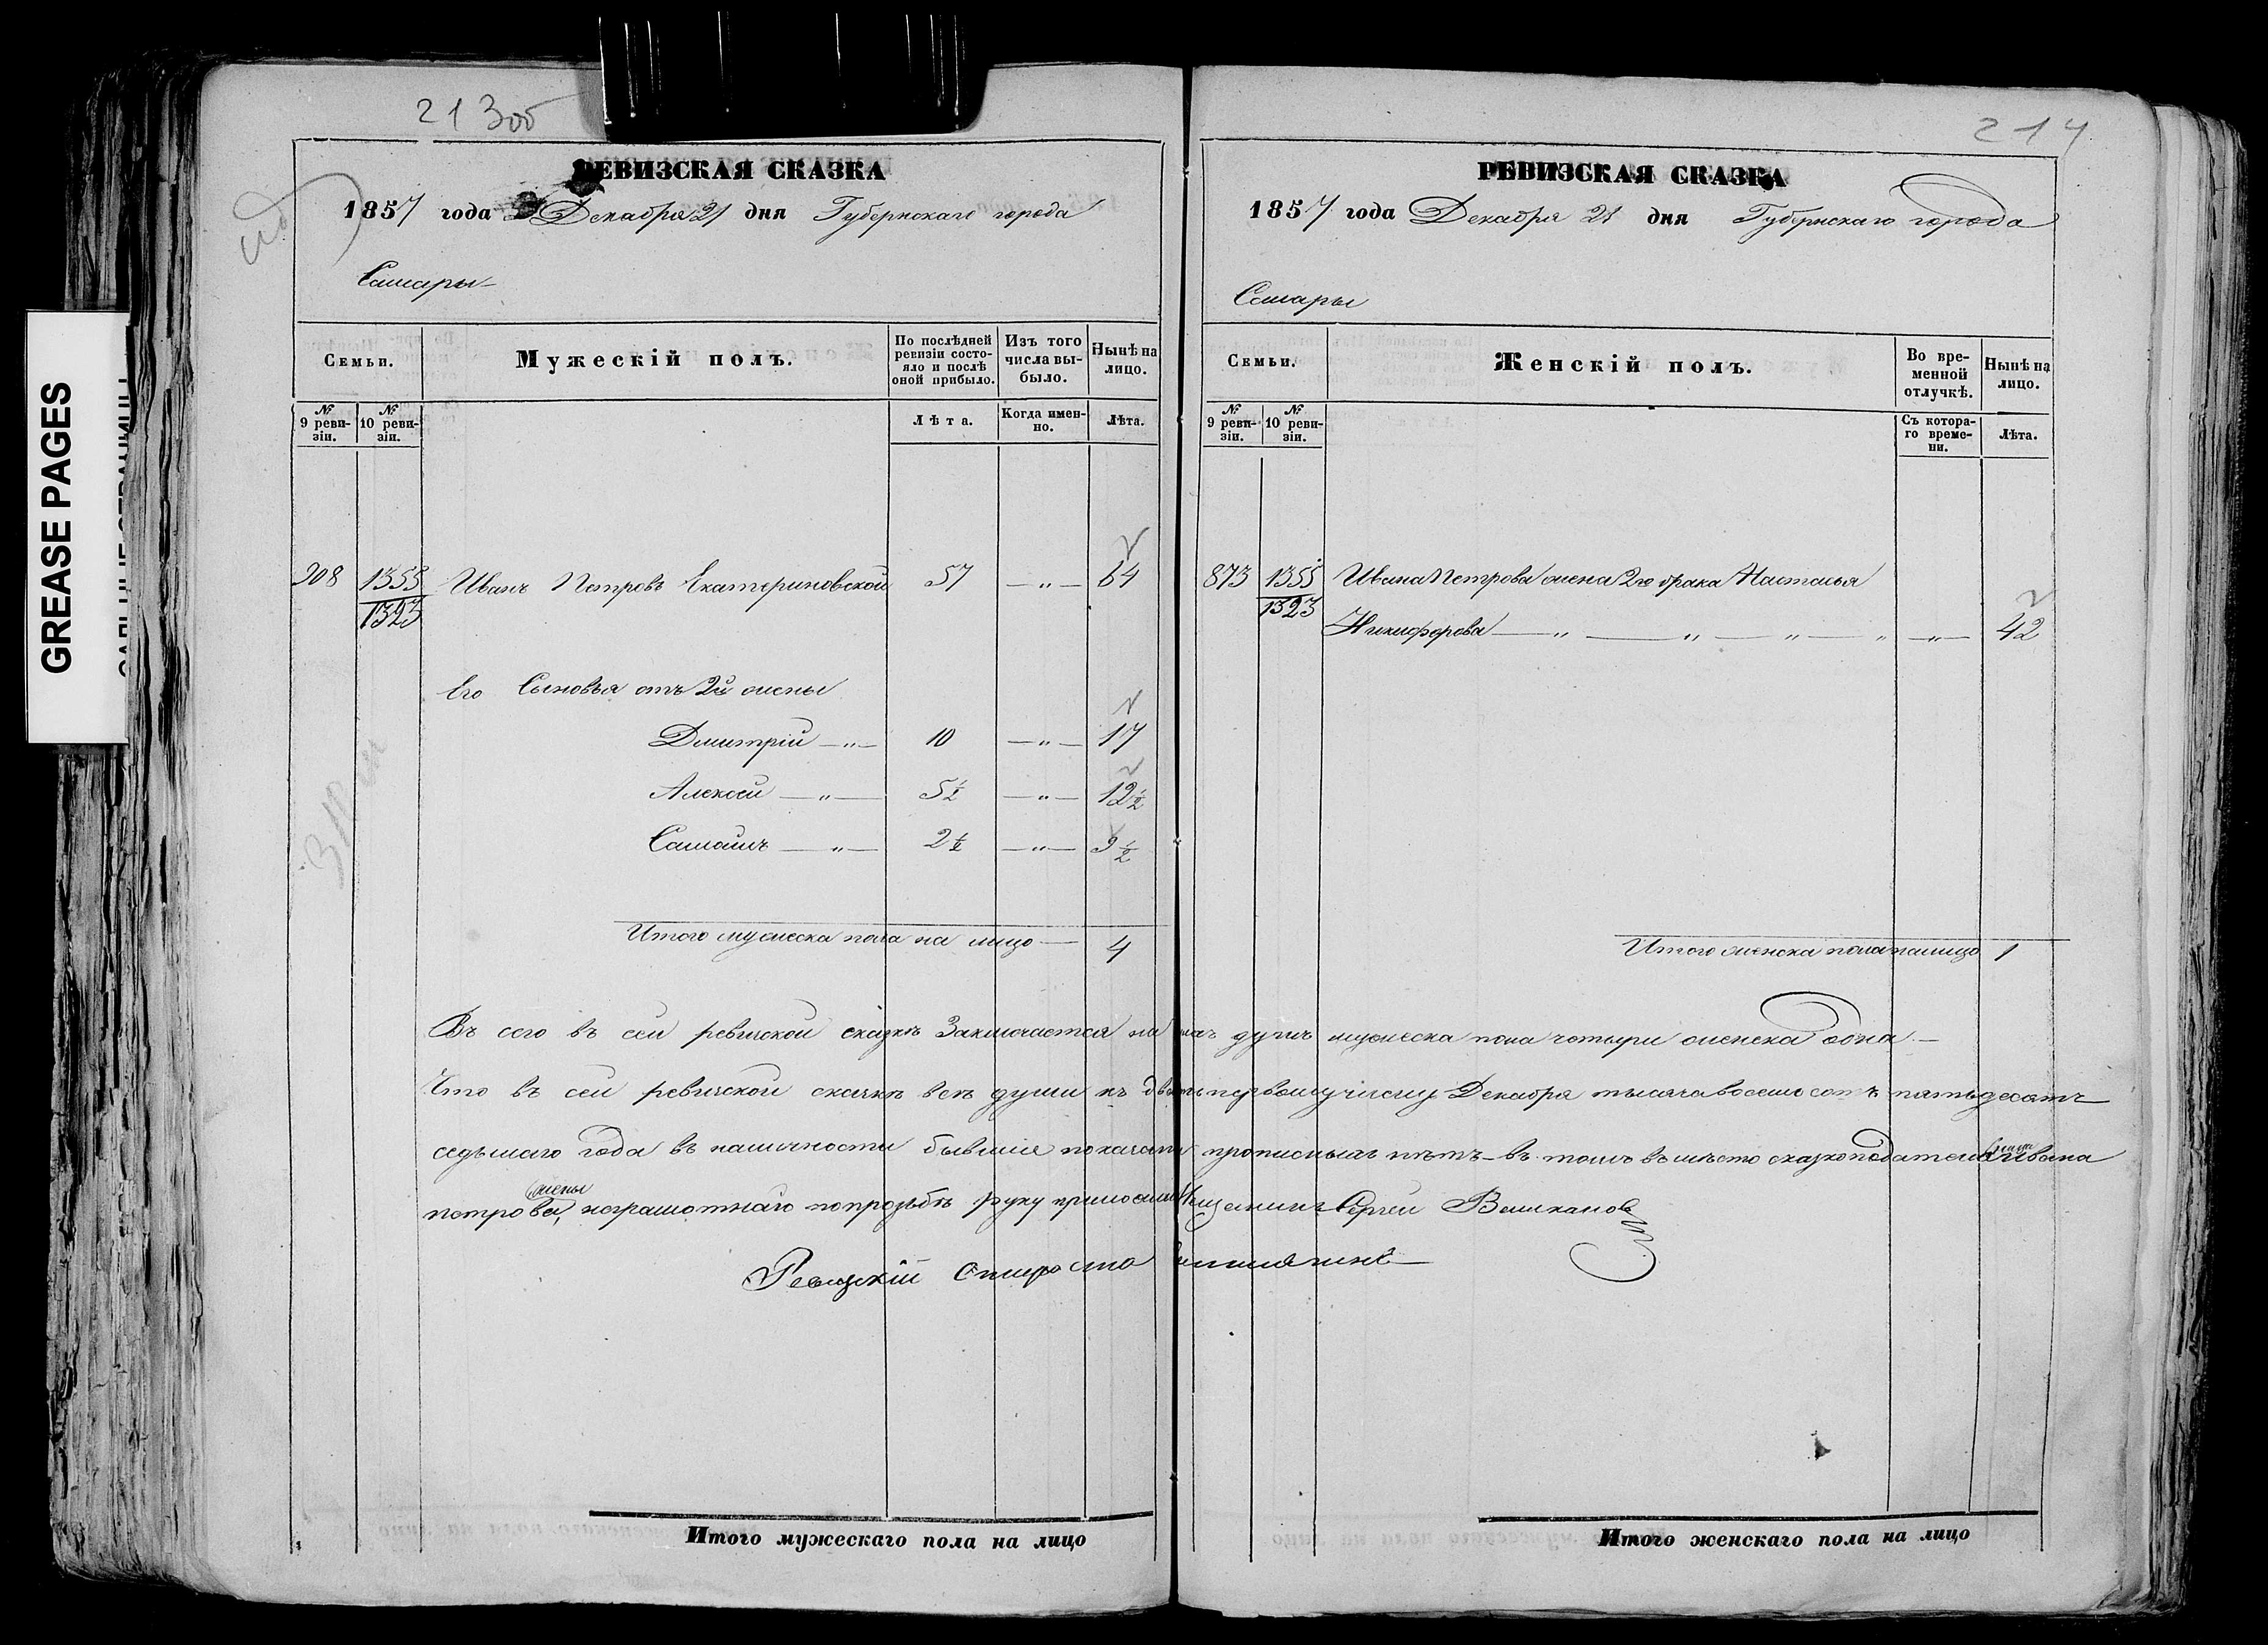 213об
РЕВИЗСКАЯ СКАЗКА
1857 года Декабря 21 дня Губернскаго города
Самары
Семьи.
Мужескій полъ.
По послѣдней ревизіи состояло и послѣ оной прибыло.
Изъ того числа выбыло.
Нынѣ на лицо.
№ 9 ревизіи.
№ 10 ревизіи.
Лѣта.
Когда именно.
Лѣта.
908 1355 Иванъ Петровъ Екатериновской 57 —„— 64
1323
Его Сыновья отъ 2й жены
Дмитрій —„— 10 —„— 17
Алексей —„— 5½ —„— 12½
Самоилъ —„— 2½ —„— 9½
Итого мужеска пола на лицо — 4
214
РЕВИЗСКАЯ СКАЗКА
1857 года Декабря 21 дня Губернскаго города
Самары
Семьи.
Женскій полъ.
Во временной отлучкѣ.
Нынѣ на лицо.
№ 9 ревизіи.
№ 10 ревизіи.
Съ котораго времени.
Лѣта.
873 1355 Ивана Петрова жена 2го брака Настасья
1323 Никифорова —„—„—„—„ —„— 42
Итого женска пола налицо 1
Въ сего въ сей ревизской сказкѣ Заключается душъ мужеска пола четыри женска одна —
Что въ сей ревизской сказкѣ всѣ души къ двать первому числу Декабря тысяча восемь сотъ пятьдесятъ
седьмаго года въ наличности бывшие показаны прописныхъ нѣтъ – въ томъ въ мѣсто сказкоподателя Ивана
жены
Петрова, неграмотнаго по прозьбѣ руку приложилъ Мещанинъ Сергей
Ревизкій Староста
Итого мужескаго пола на лицо
Итого женскаго пола на лицо
GREASE PAGES